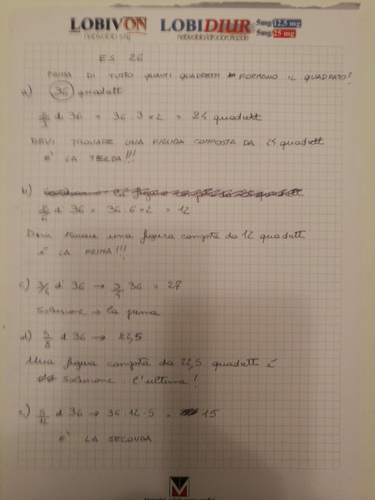 LOBIVON LOBIDIUR 5mg/12,5 mg
nebivololo 5mg nebivololo/idroclorotiazide 5mg/25 mg
ES 26
PRIMA DI TUTTO QUANTI QUADRETTI FORMANO IL QUADRATO!
a) 36 quadretti
di 36 = 36 : 3 × 2 = 24 quadretti
DEVI TROVARE UNA FIGURA COMPOSTA DA 24 quadretti
E' LA TERZA!!!
b)
di 36 = 36 : 6 × 2 = 12
Devi trovare una figura composta da 12 quadretti
è LA PRIMA!!!
c) 3/4 di 36 → 3/4 36 = 27
Soluzione → la prima
d) 5/8 di 36 → 22,5
Una figura composta da 22,5 quadretti è
soluzione l'ultima!
e) 5/12 di 36 → 36 : 12 · 5 = 15
E' LA SECONDA